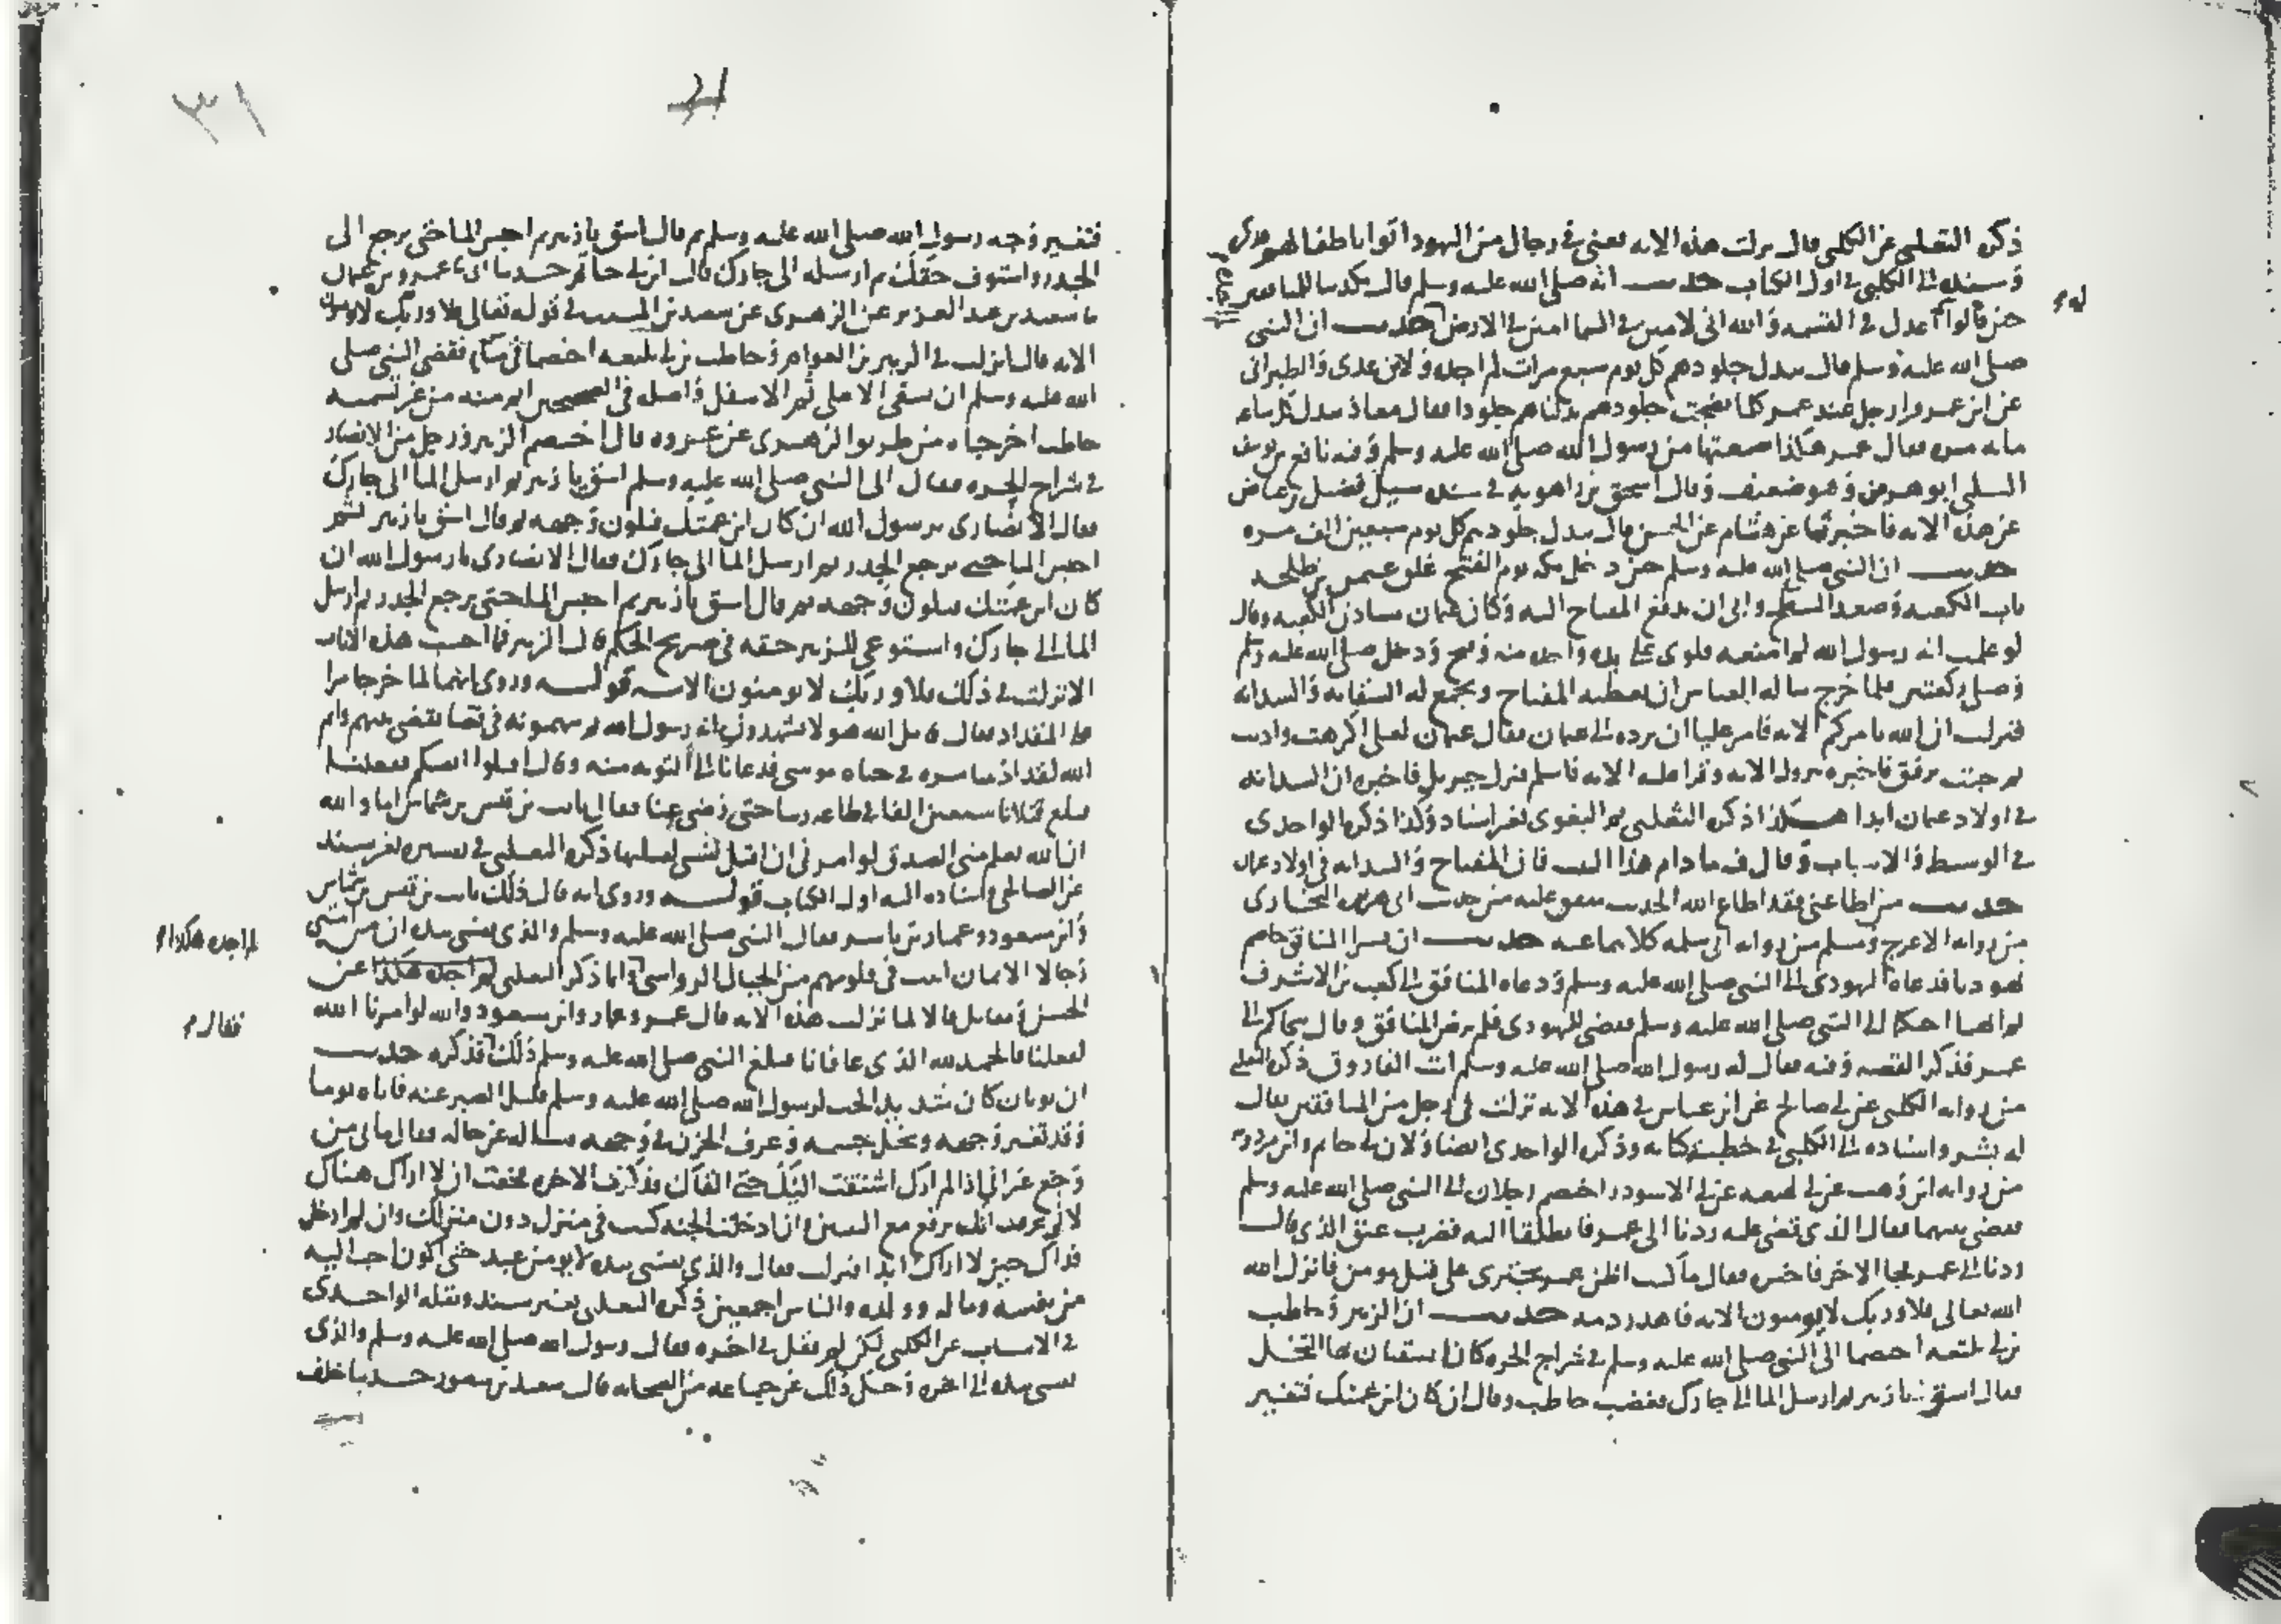 ذكره الثعلبي عن الكلبي قال نزلت هذه الآية يعني في رجال من اليهود أتوا بأطفالهم
وسنده إلى الكلبي في أول الكتاب حديث أنه صلى الله عليه وسلم قال
حين قالوا اعدل في القسمة والله إني لأمين في السما أمين في الأرض حديث أن النبي
صلى الله عليه وسلم قال تبدل جلودهم كل يوم سبع مرات لم أجده ولابن عدي والطبراني
عن ابن عمر قرا رجل عند عمر كلما نضجت جلودهم بدلناهم جلودا فقال معاذ تبدل في ساعة
مائة مرة فقال عمر هكذا سمعتها من رسول الله صلى الله عليه وسلم وفيه نافع بن يوسف
السلمي أبو هرمز وهو ضعيف وقال إسحق بن راهويه في مسنده سئل فضيل بن عياض
عن هذه الآية فأخبرنا عن هشام عن الحسن قال تبدل جلودهم كل يوم سبعين ألف مرة
حديث أن النبي صلى الله عليه وسلم حين دخل مكة يوم الفتح غلق عثمن بن طلحة
باب الكعبة وصعد السطح وأبى أن يدفع المفتاح إليه وكان عثمان سادن الكعبة وقال
لو علمت أنه رسول الله لم أمنعه فلوى علي يده وأخذه منه وفتح ودخل صلى الله عليه وسلم
وصلى ركعتين فلما خرج سأله العباس أن يعطيه المفتاح ويجمع له السقاية والسدانة
فنزلت إن الله يأمركم الآية فأمر عليا أن يرده إلى عثمان فقال عثمان لعلي أكرهت وآذيت
ثم جئت ترفق فأخبره بنزول الآية وقرأ عليه الآية فأسلم فنزل جبريل فأخبره أن السدانة
في أولاد عثمان أبدا هكذا ذكره الثعلبي ثم البغوي بغير إسناد وكذا ذكره الواحدي
في الوسيط والأسباب وقال فيه ما دام هذا البيت فإن المفتاح والسدانة في أولاد عثمان
حديث من أطاعني فقد أطاع الله الحديث متفق عليه من حديث أبي هريرة البخاري
من رواية الأعرج ومسلم من رواية أبي سلمة كلاهما عنه حديث أن بشرا المنافق خاصم
يهوديا فدعاه اليهودي إلى النبي صلى الله عليه وسلم ودعاه المنافق إلى كعب بن الأشرف
ثم إنهما احتكما إلى النبي صلى الله عليه وسلم فقضى لليهودي فلم يرض المنافق وقال نتحاكم إلى
عمر فذكر القصة وفيه فقال له رسول الله صلى الله عليه وسلم أنت الفاروق ذكره الثعلبي
من رواية الكلبي عن أبي صالح عن ابن عباس في هذه الآية نزلت في رجل من المنافقين يقال
له بشر وإسناده إلى الكلبي في خطبة كتابه وذكره الواحدي أيضا ولابن أبي حاتم وابن مردويه
من رواية ابن وهب عن ابن لهيعة عن أبي الأسود اختصم رجلان إلى النبي صلى الله عليه وسلم
فقضى بينهما فقال الذي قضى عليه ردنا إلى عمر فانطلقا إليه فضرب عنق الذي قال
ردنا إلى عمر فجا الآخر فأخبره فقال ما كنت أظن عمر يجتري على قتل مومن فأنزل الله
الله تعالى فلا وربك لا يومنون الآية فأهدر دمه حديث أن الزبير وحاطب
بن أبي بلتعة اختصما إلى النبي صلى الله عليه وسلم في شراج الحرة كانا يسقيان بها النخل
فقال اسق يا زبير ثم أرسل الما إلى جارك فغضب حاطب وقال أن كان ابن عمتك فتغير
٣١
فتغير وجه رسول الله صلى الله عليه وسلم ثم قال اسق يا زبير ثم احبس الما حتى يرجع إلى
الجدر واستوف حقك ثم أرسله إلى جارك قال ابن أبي حاتم حدثنا أبي عمرو بن عثمان
سعيد بن عبد العزيز عن الزهري عن سعيد بن المسيب في قوله تعالى فلا وربك لا يومنون
الآية قال أنزلت في الزبير بن العوام وحاطب بن أبي بلتعة اختصما في ما فقضى النبي صلى
الله عليه وسلم أن يسقى الأعلى ثم الأسفل وأصله في الصحيحين أتم منه من غير تسمية
حاطب أخرجاه من طريق الزهري عن عروة قال اختصم الزبير ورجل من الأنصار
في شراج الحرة فقال النبي صلى الله عليه وسلم اسق يا زبير ثم أرسل الما إلى جارك
فقال الأنصاري يرسول الله أن كان ابن عمتك فتلون وجهه ثم قال اسق يا زبير ثم
احبس الما حتى يرجع الجدر ثم أرسل الما إلى جارك فقال الأنصاري يا رسول الله أن
كان ابن عمتك فتلون وجهه ثم قال اسق يا زبير ثم احبس الما حتى يرجع الجدر ثم أرسل
الما إلى جارك واستوعى للزبير حقه في صريح الحكم قال الزبير فما أحسب هذه الآيات
إلا نزلت في ذلك فلا وربك لا يومنون الآية قوله وروي أنهما لما خرجا مرا
على المقداد فقال قاتل الله هولا يشهدون أنه رسول الله ثم يتهمونه في قضا يقضى بينهم وايم
الله لقد أذنبنا مرة في حياة موسى فدعانا إلى التوبة منه وقال اقتلوا أنفسكم ففعلنا
فبلغ قتلانا سبعين ألفا في طاعة ربنا حتى رضي عنا فقال ثابت بن قيس بن شماس أما والله
إن الله يعلم مني الصدق لو أمرني أن أقتل نفسي لقتلتها ذكره الثعلبي في تفسيره بغير سند
عن الصالحي وإسناده إليه أول الكتاب قوله وروي أنه قال ذلك ثابت بن قيس بن شماس
وابن مسعود وعمار بن ياسر فقال النبي صلى الله عليه وسلم والذي نفسي بيده إن من أمتي
رجالا الإيمان أثبت في قلوبهم من الجبال الرواسي وإنما ذكر الثعلبي لم أجده هكذا عن
لم أجده هكذا م
الحسن ومقاتل قالا لما نزلت هذه الآية قال عمر وعمار وابن مسعود والله لو أمرنا الله
فقال م
لفعلنا فالحمد لله الذي عافانا فبلغ النبي صلى الله عليه وسلم ذلك فذكره حديث
أن ثوبان كان شديد الحب لرسول الله صلى الله عليه وسلم قليل الصبر عنه فأتاه يوما
وقد تغير وجهه ونحل جسمه وعرف الحزن في وجهه فسأله عن حاله فقال ما بي من
وجع غير أني إذا لم أرك اشتقت إليك حتى ألقاك فذكرت الآخرة فخفت أن لا أراك هناك
لأني عرفت أنك ترفع مع النبيين وإن أدخلت الجنة كنت في منزل دون منزلك وإن لم أدخل
فذاك حين لا أراك أبدا فنزلت فقال والذي نفسي بيده لا يومن عبد حتى أكون أحب إليه
من نفسه وماله وولده والناس أجمعين ذكره الثعلبي بغير سند ونقله الواحدي
في الأسباب عن الكلبي لكن لم يقل في آخره فقال رسول الله صلى الله عليه وسلم والذي
نفسي بيده إلى آخره وحكى ذلك عن جماعة من الصحابة قال سعيد بن منصور حدثنا خلف